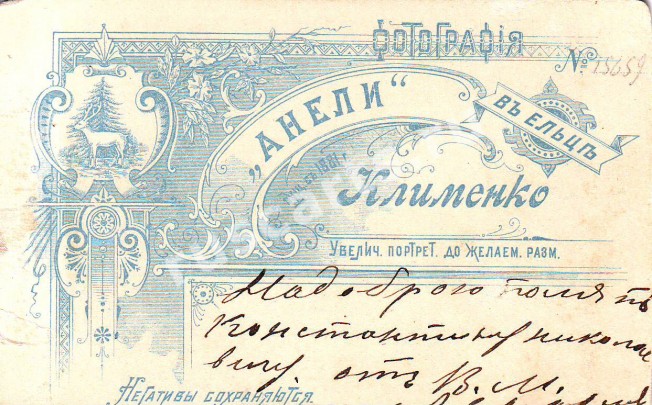 ФОТОГРАФІЯ
№ 15659
„АНЕЛИ“
ВЪ ЕЛЬЦѢ
1881 г.
Клименко
УВЕЛИЧ. ПОРТРЕТ. ДО ЖЕЛАЕМ. РАЗМ.
На доброю память
Константину николае
вичу отъ В. М.
НЕГАТИВЫ СОХРАНЯЮТСЯ.